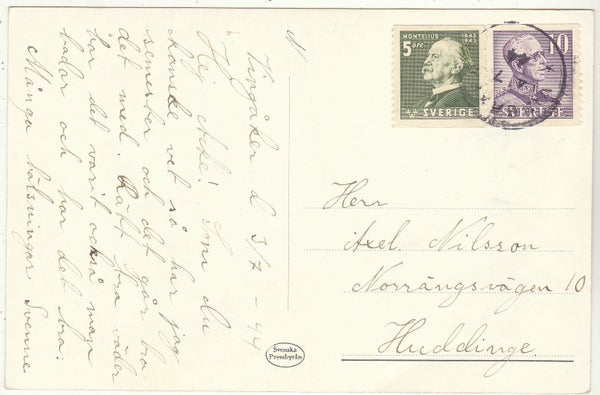 Vingåker d 3/7 - 44
Hej Acke! Som du
kanske vet så har jag
semester och det går bra
det med. Rätt bra väder
har det varit också man
badar och har det bra.
Många hälsningar Svenne
5 öre
MONTELIUS
1843
1943
SVERIGE
10
SVERIGE
Herr
Axel. Nilsson
Norrängsvägen 10
Huddinge.
Svenska
Pressbyrån